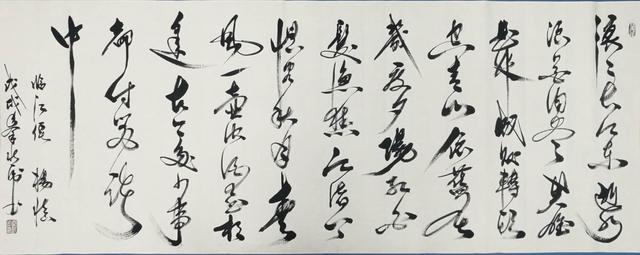 滚滚长江东逝水
浪花淘尽英雄
是非成败轉頭
空青山依舊在
幾度夕陽红白
髮渔樵江渚上
惯看秋月春
風一壶浊酒喜相
逢古今多少事
都付笑谈
中
临江仙 楊慎
戊戌
书